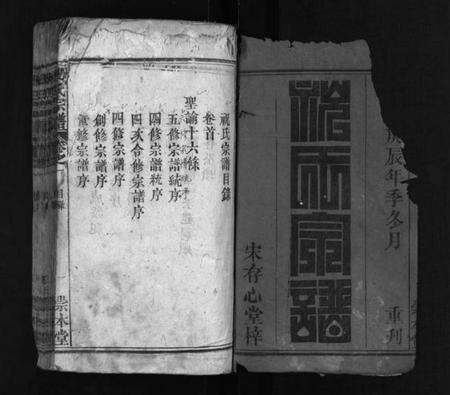 辰年季冬月 重刊
祝氏宗譜
宋存心堂梓
祝氏宗譜目錄
卷首
聖諭十六條
五修宗譜統序
四修宗譜統序
四次合修宗譜序
四修宗譜序
創修宗譜序
修宗譜序
氏宗譜 卷之 目錄 崇本堂